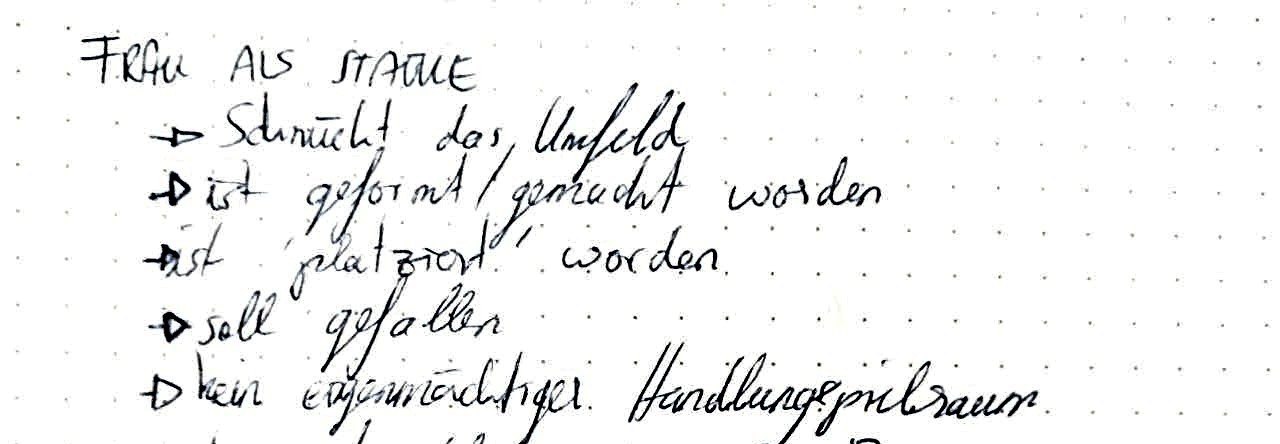 FRAU ALS STATUE
→ Schmückt das Umfeld
→ ist geformt / gemacht worden
→ ist 'platziert' worden
→ soll gefallen
→ kein eigenmächtiger Handlungsspielraum